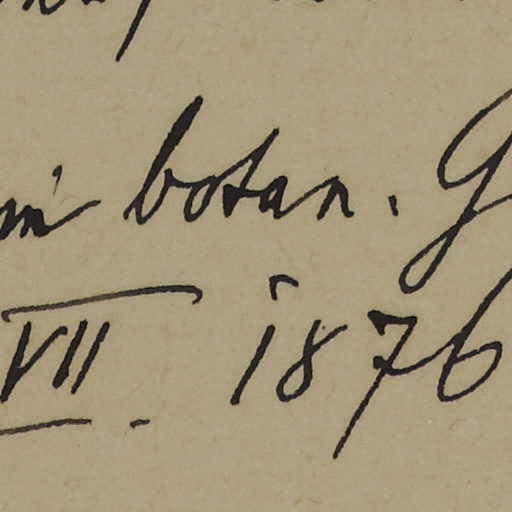 im botan. G
VII. 1876